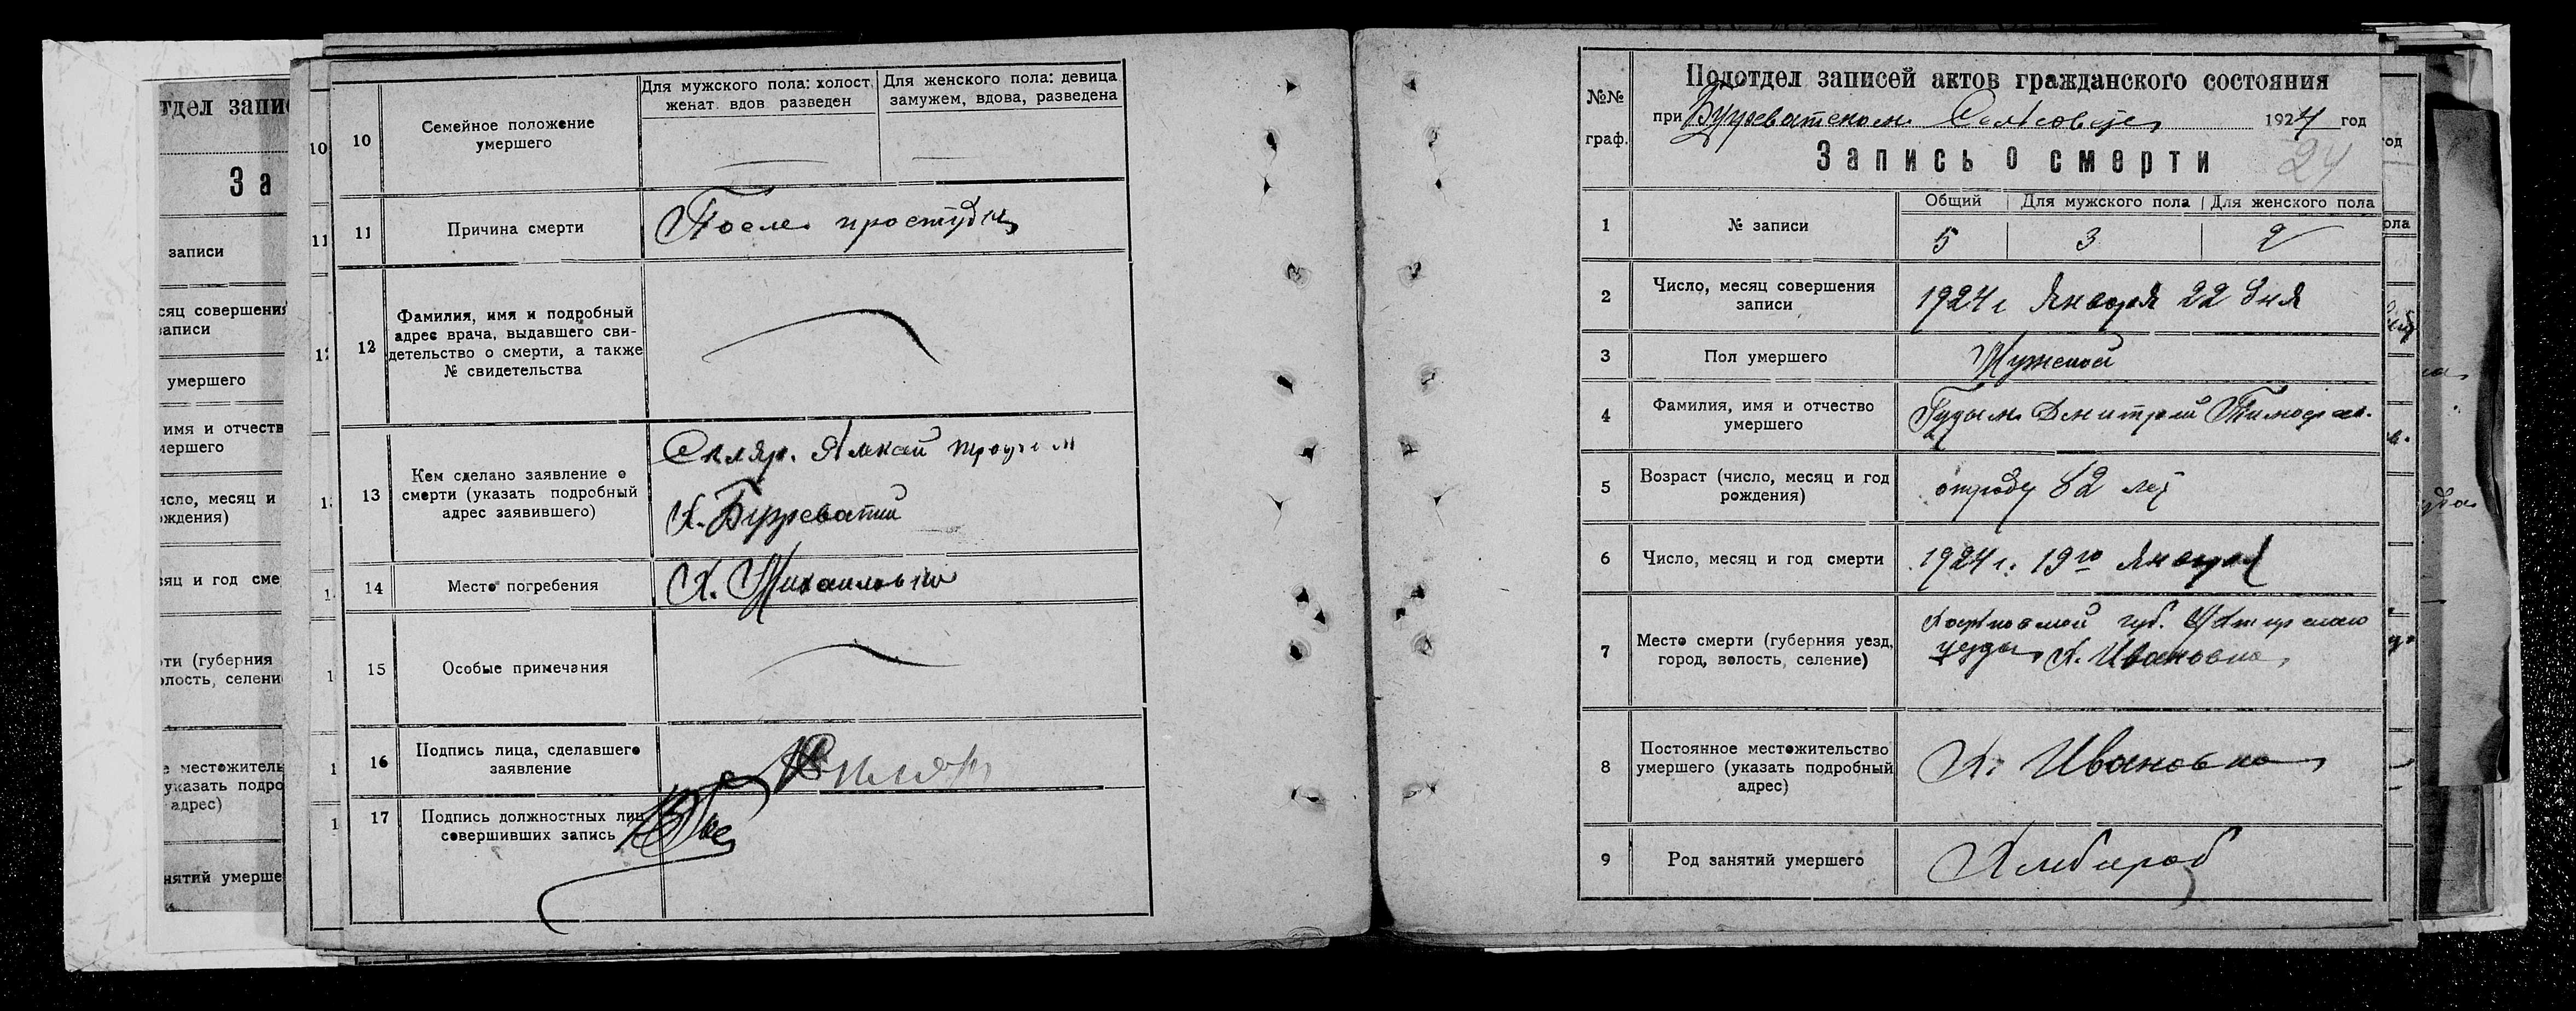 10
Семейное положение
умершего
Для мужского пола: холост,
женат. вдов разведен
Для женского пола: девица
замужем, вдова, разведена
11
Причина смерти
После простуды
12
Фамилия, имя и подробный
адрес врача, выдавшего сви-
детельство о смерти, а также
№ свидетельства
13
Кем сделано заявление о
смерти (указать подробный
адрес заявившего)
Скляр. Алексей
Х. Бурреватий
14
Место погребения
Х. Михайловка
15
Особые примечания
16
Подпись лица, сделавшего
заявление
Скляр
17
Подпись должностных лиц
совершивших запись
№№
граф.
Подотдел записей актов гражданского состояния
при Бурреватском Сельсовете 1924 год
Запись о смерти
24
1
№ записи
Общий
Для мужского пола
Для женского пола
5
3
2
2
Число, месяц совершения
записи
1924 г Января 22 дня
3
Пол умершего
Мужской
4
Фамилия, имя и отчество
умершего
Гудым Дмитрий Тимоф.
5
Возраст (число, месяц и год
рождения)
отроду 82 лет
6
Число, месяц и год смерти
1924 г. 19го Января
7
Место смерти (губерния уезд,
город, волость, селение)
Харьковской губ.
уезда Х. Ивановка
8
Постоянное местожительство
умершего (указать подробный
адрес)
Х. Ивановка
9
Род занятий умершего
Хлебороб
тдел запис
За
записи
сяц совершения
записи
умершего
имя и отчеств
мершего
исло, месяц и
ождения)
сяц и год сме
рти (губерния
олость, селени
е местожитель
указать подро
адрес)
нятий умерше